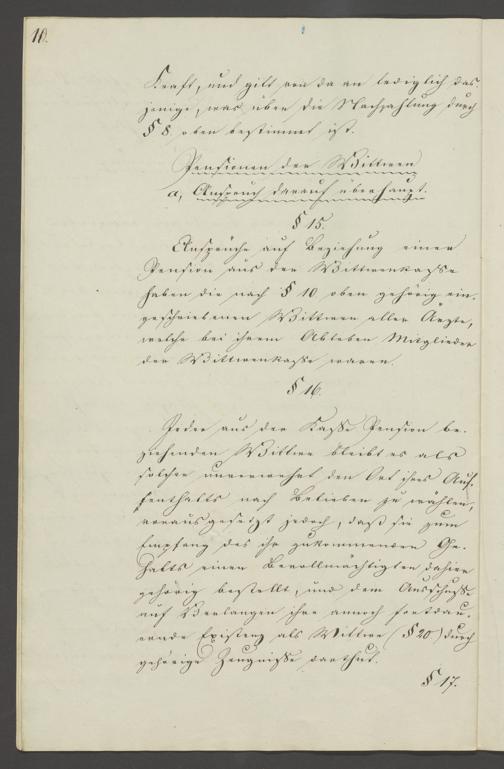 10.
Kraft, und gilt von da an lediglich das-
jenige, was über die Nachzahlung durch
§ 8 oben bestimmt ist.
Pensionen der Wittwen
a, Anspruch darauf überhaupt.
§ 15.
Ansprüche auf Beziehung einer
Pension aus der Wittwenkasse
haben die nach § 10 oben gehörig ein-
geschriebenen Wittwen aller Ärzte,
welche bei ihrem Ableben Mitglieder
der Wittwenkasse waren.
§ 16.
Jeder aus der Kasse Pension be-
ziehenden Wittwe bleibt es als
solcher unverwehrt den Ort ihres Auf-
enthalts nach Belieben zu wählen,
vorausgesetzt jedoch, daß sie zum
Empfang des ihr zukommenden Ge-
halts einen Bevollmächtigten dahier
gehörig bestellt, und dem Ausschusse
auf Verlangen ihre annoch fortdau-
ernde Existenz als Wittwe (§ 20) durch
gehörige Zeugnisse darthut.
§ 17.